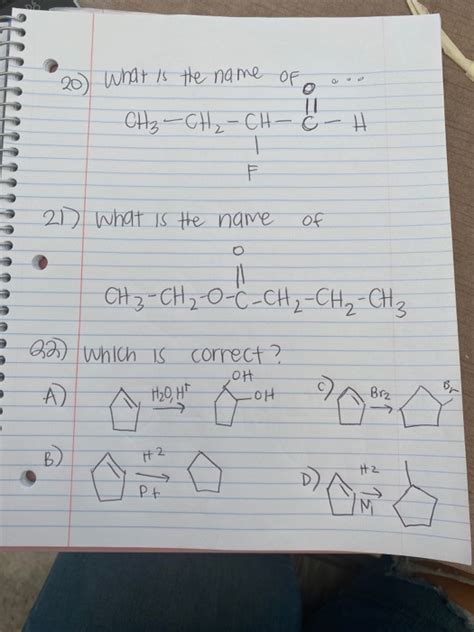 20) What is the name of ...
O
||
CH3-CH2-CH-C-H
|
F
21) What is the name of
O
||
CH3-CH2-O-C-CH2-CH2-CH3
22) Which is correct?
A) H2O, H+ → OH OH
C) Br2 → Br
B) H2 → Pt
D) H2 → Ni